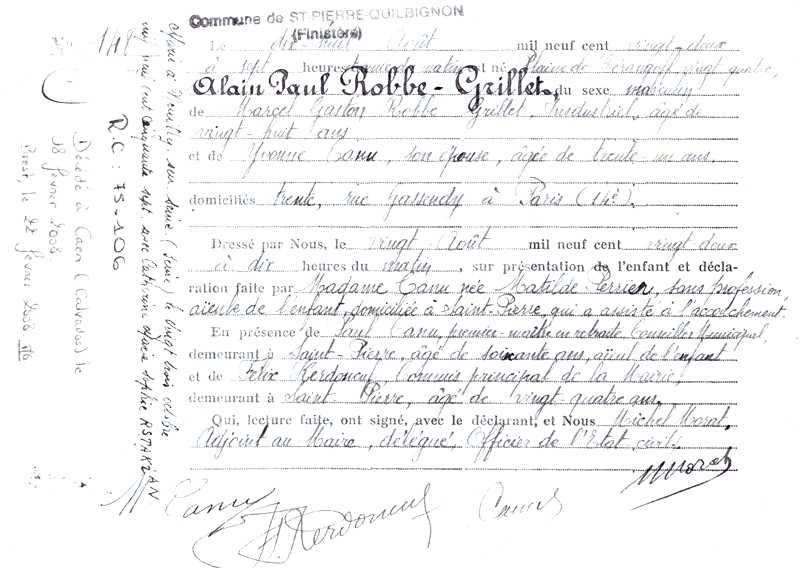 Commune de ST-PIERRE-QUILBIGNON
(Finistère)
No 148
Le dix-huit Août mil neuf cent vingt-deux
à sept heures du matin est né, vingt quatre,
Alain Paul Robbe-Grillet, du sexe masculin
de Marcel Gaston Robbe Grillet, Industriel, âgé de
vingt-huit ans
et de Yvonne Canu, son épouse, âgée de trente un ans.
domiciliés trente, rue Gassendy à Paris (14e).
Dressé par Nous, le vingt Août mil neuf cent vingt deux
à dix heures du matin, sur présentation de l'enfant et décla-
ration faite par Madame Canu née Matilde Perrier, sans profession,
aïeule de l'enfant, domiciliée à Saint-Pierre, qui a assisté à l'accouchement.
En présence de Paul Canu, premier-maître en retraite Conseiller Municipal,
demeurant à Saint-Pierre, âgé de soixante ans, aïeul de l'enfant
et de Félix Kerdoncuf, Commis principal de la Mairie,
demeurant à Saint Pierre, âgé de vingt-quatre ans.
Qui, lecture faite, ont signé, avec le déclarant, et Nous Michel Morat,
Adjoint au Maire, délégué, Officier de l'Etat civil.
Morat
M. Canu
Kerdoncuf
Canu
Marié à Neuilly sur Seine (Seine) le vingt trois octobre
mil neuf cent cinquante sept avec Catherine Marie Sophie RSTAKIAN
R.C : 75-106
Décédé à Caen (Calvados) le
18 février 2008.
Brest, le 22 février 2008